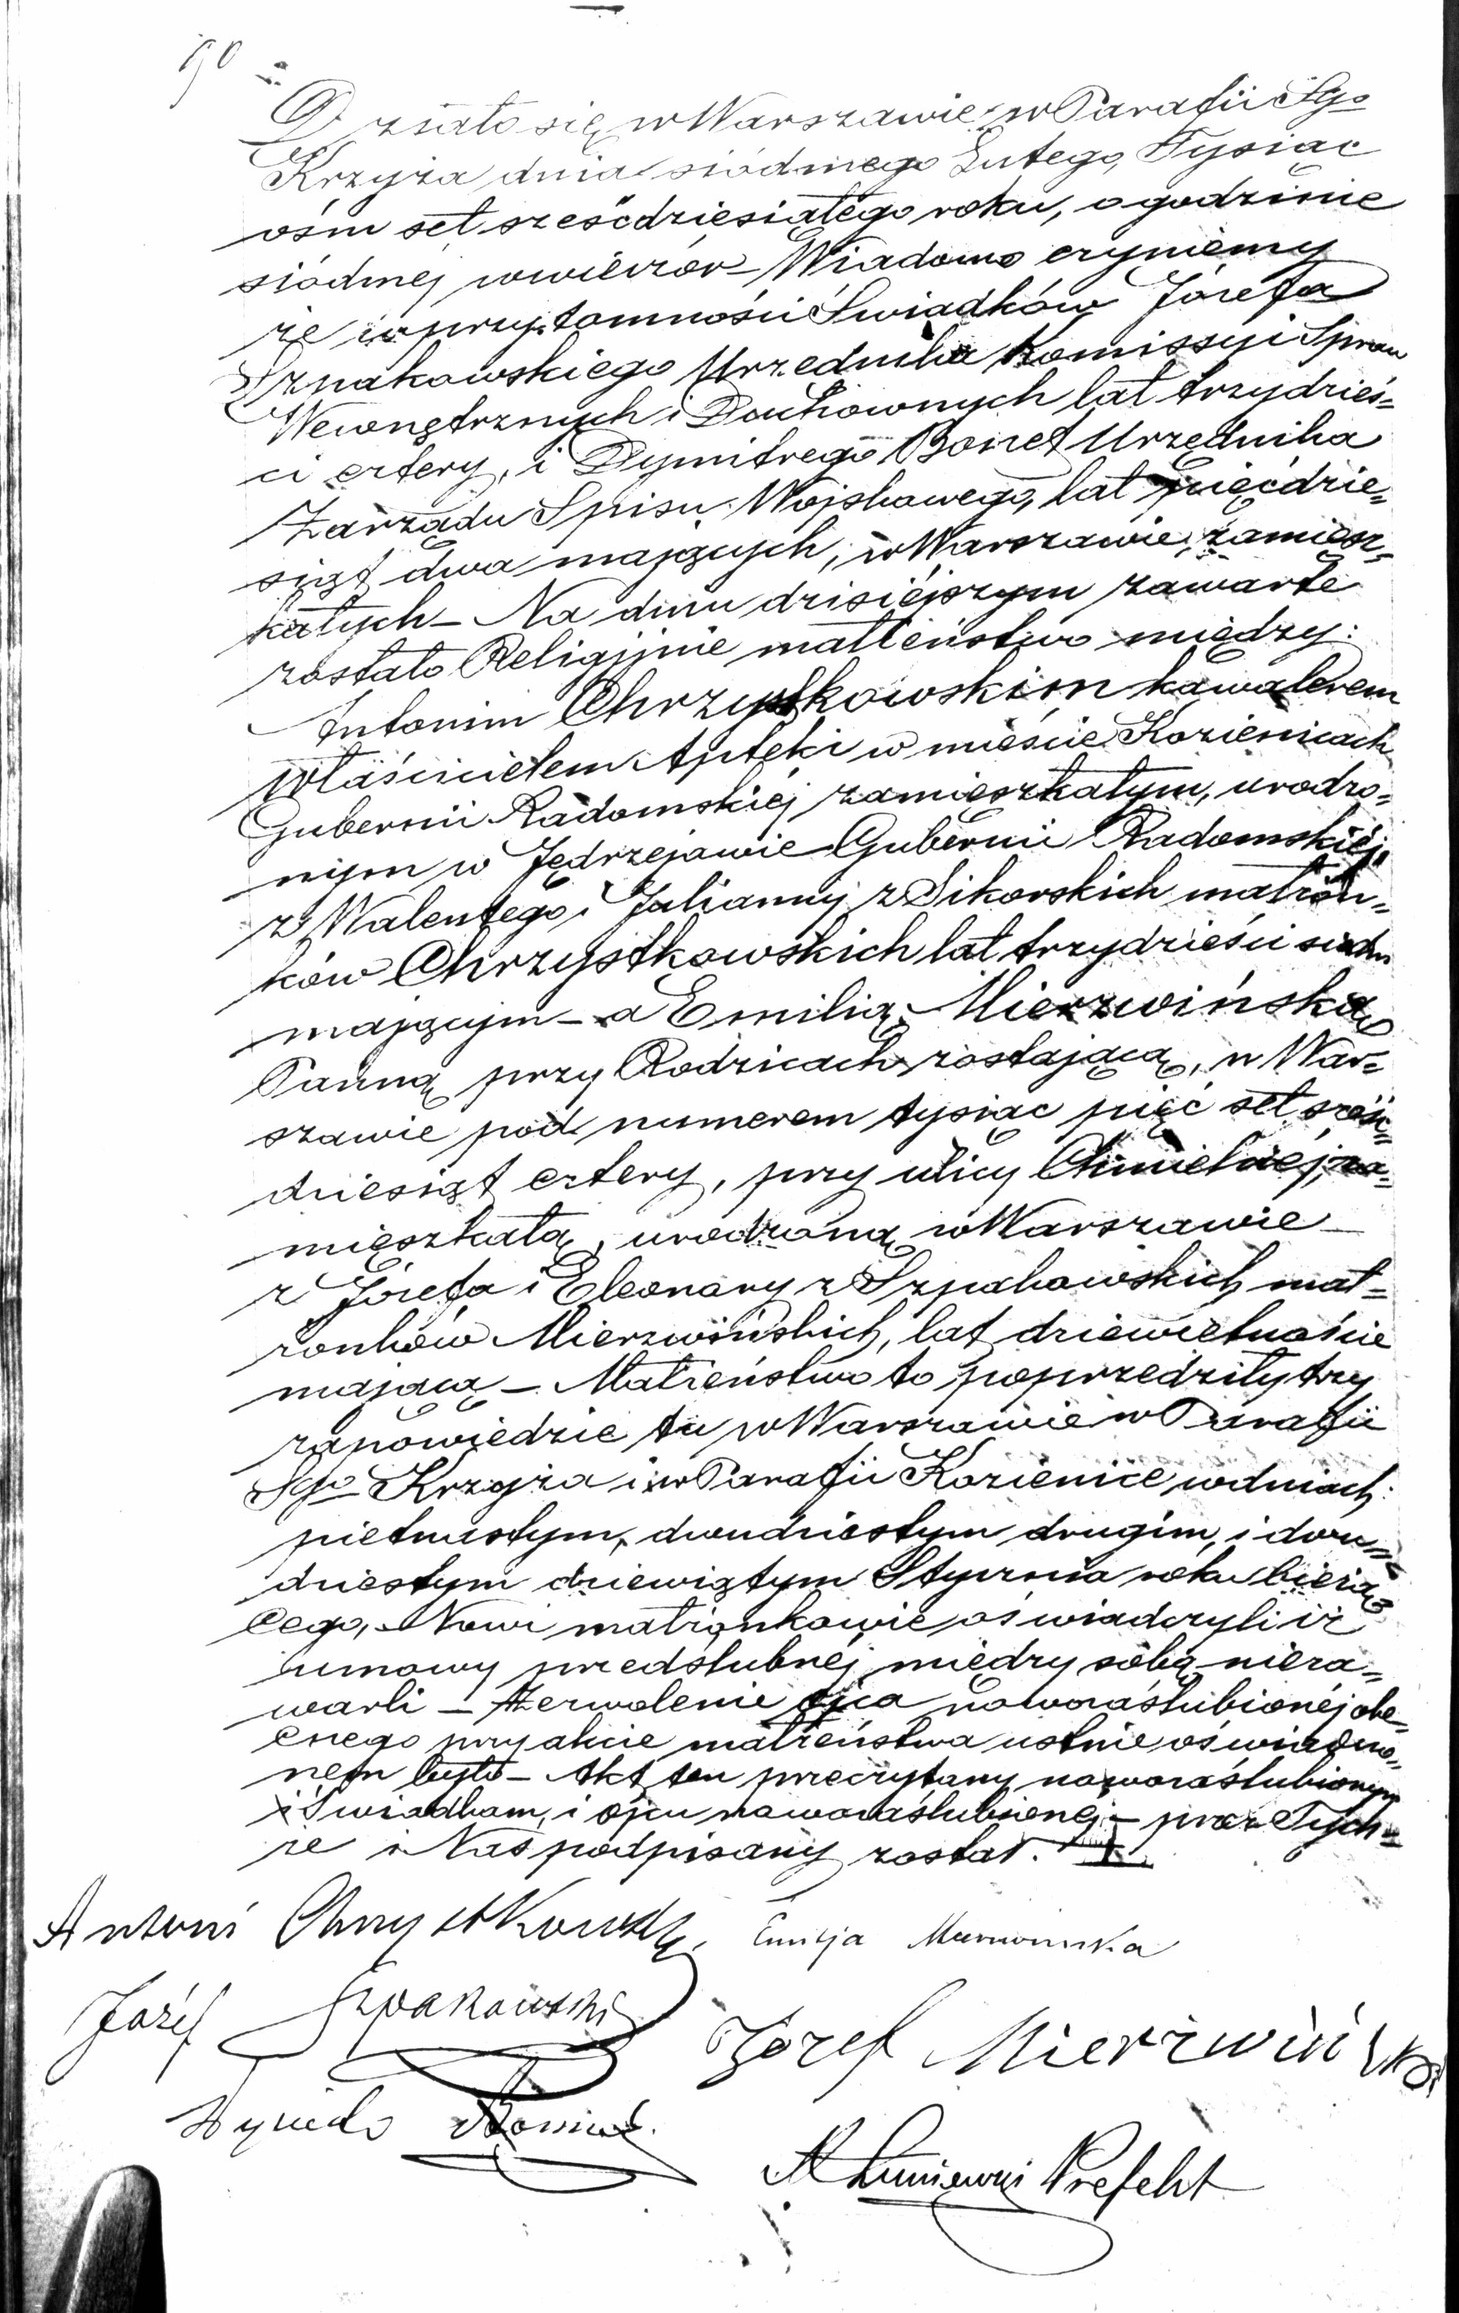 90
Działo się w Warszawie w Parafii Sgo
Krzyża dnia siódmego Lutego, Tysiąc
ośm set sześćdziesiątego roku, o godzinie
siódmej wwieczór – Wiadomo czyniemy
że w przytomności Świadków Józefa
Szpakowskiego Urzednika Kommissyi Spraw
Wewnętrznych i Duchownych lat trzydzieś=
ci cztery, i Dymitrego Bonet Urzędnika
Zarządu Spisu Wojskowego, lat pięćdzie=
siąt dwa mających, w Warszawie zamiesz=
kałych – Na dniu dzisiéjszym zawarte
zostało Religijnie małżeństwo między:
Antonim Chrzystkowskim kawalerem
właścicielem Apteki w mieście Kozienicach
Gubernii Radomskiéj zamieszkałym, urodzo=
nym w Jędrzejowie Gubernii Radomskiéj,
z Walentego i Julianny z Sikorskich małżon=
ków Chrzystkowskich lat trzydzieści siedm
mającym – a Emilią Mierzwińską
Panną przy Rodzicach zostającą, w War=
szawie pod numerem tysiąc pięć set sześć=
dziesiąt cztery, przy ulicy Chmielnéj, za=
mięszkałą, urodzoną w Warszawie
z Józefa i Eleonory z Szpakowskich mał=
żonków Mierzwińskich, lat dziewietnaście
mającą – Małżeństwo to poprzedziły trzy
zapowiedzie tu w Warszawie w Parafii
Sgo Krzyża i w Parafii Kozienice w dniach:
pietnastym, dwudziestym drugim, i dwu=
dziestym dziewiątym Stycznia roku bieżą=
cego, – Nowi małżonkowie oświadczyli iż
umowy przedślubnéj między sobą nieza=
warli – Zezwolenie ojca nowozaślubionéj obe=
cnego przy akcie małżeństwa ustnie oświadczo=
nem było – Akt ten przeczytany nowozaślubionym
i Świadkom, i ojcu nowozaślubionej – przez Tych=
że i Nas podpisany został.
Antoni Chrzystkowski, Emilja Mierzwinska
Józéf Szpakowski
Józef Mierzwiński
Prefekt